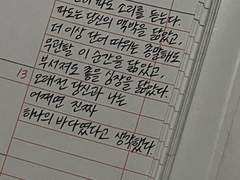 파도 소리를 듣는다.
파도는 당신의 맥박을 닮았고,
더 이상 단어 따위는 종말해도
무관할 이 순간을 닮았고.
부서져도 좋을 심장을 닮았다.
13 오래전 당신과 나는
어쩌면 진짜
하나의 바다였다고 생각했다.